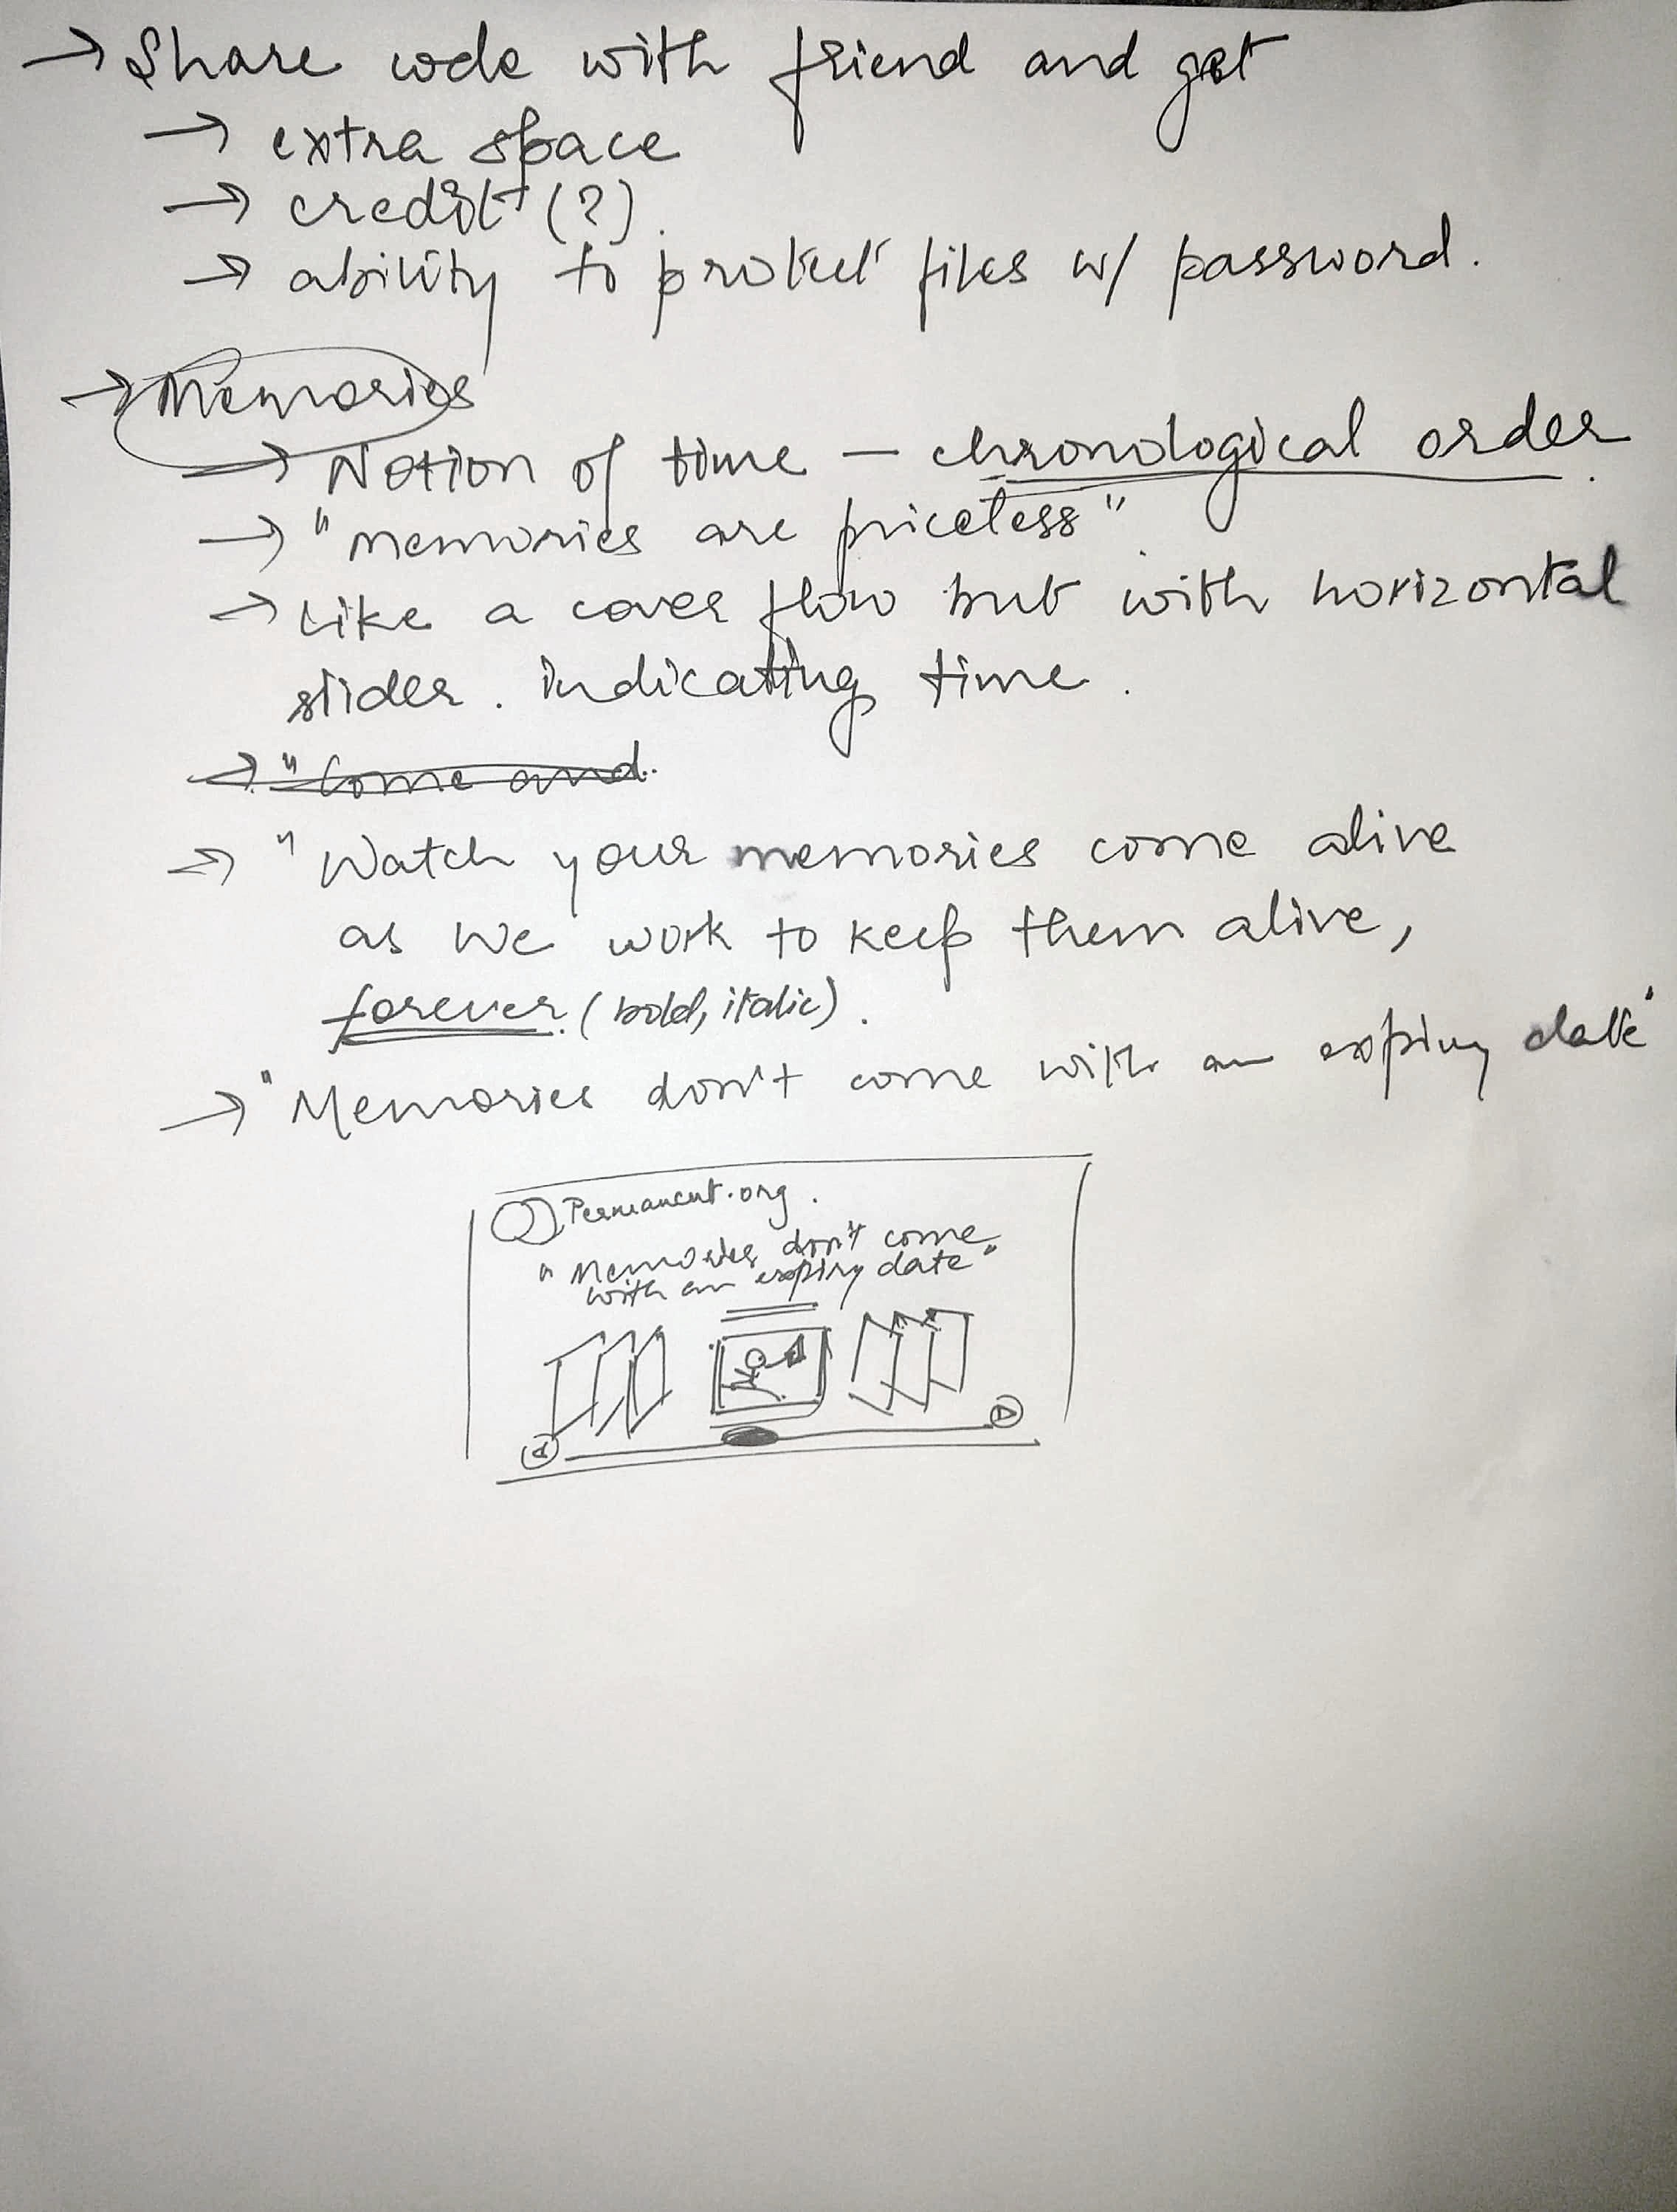 → Share code with friend and get
→ extra space
→ credit (?).
→ ability to protect files w/ password.
→ Memories
→ Notion of time — chronological order.
→ "memories are priceless".
→ Like a cover flow but with horizontal
slider. indicating time.
→ "Come and.
→ "Watch your memories come alive
as we work to keep them alive,
forever. (bold, italic).
→ "Memories don't come with an expiry date"
Permanent.org.
"Memories don't come
with an expiry date"